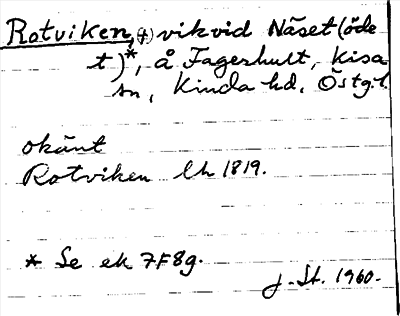 Rotviken, (f) vik vid Näset (öde
t)*, å Fagerhult, Kisa
sn, Kinda hd, Östg. l.
okänt
Rotviken lh 1819.
* Se ek 7F8g.
J. St. 1960.